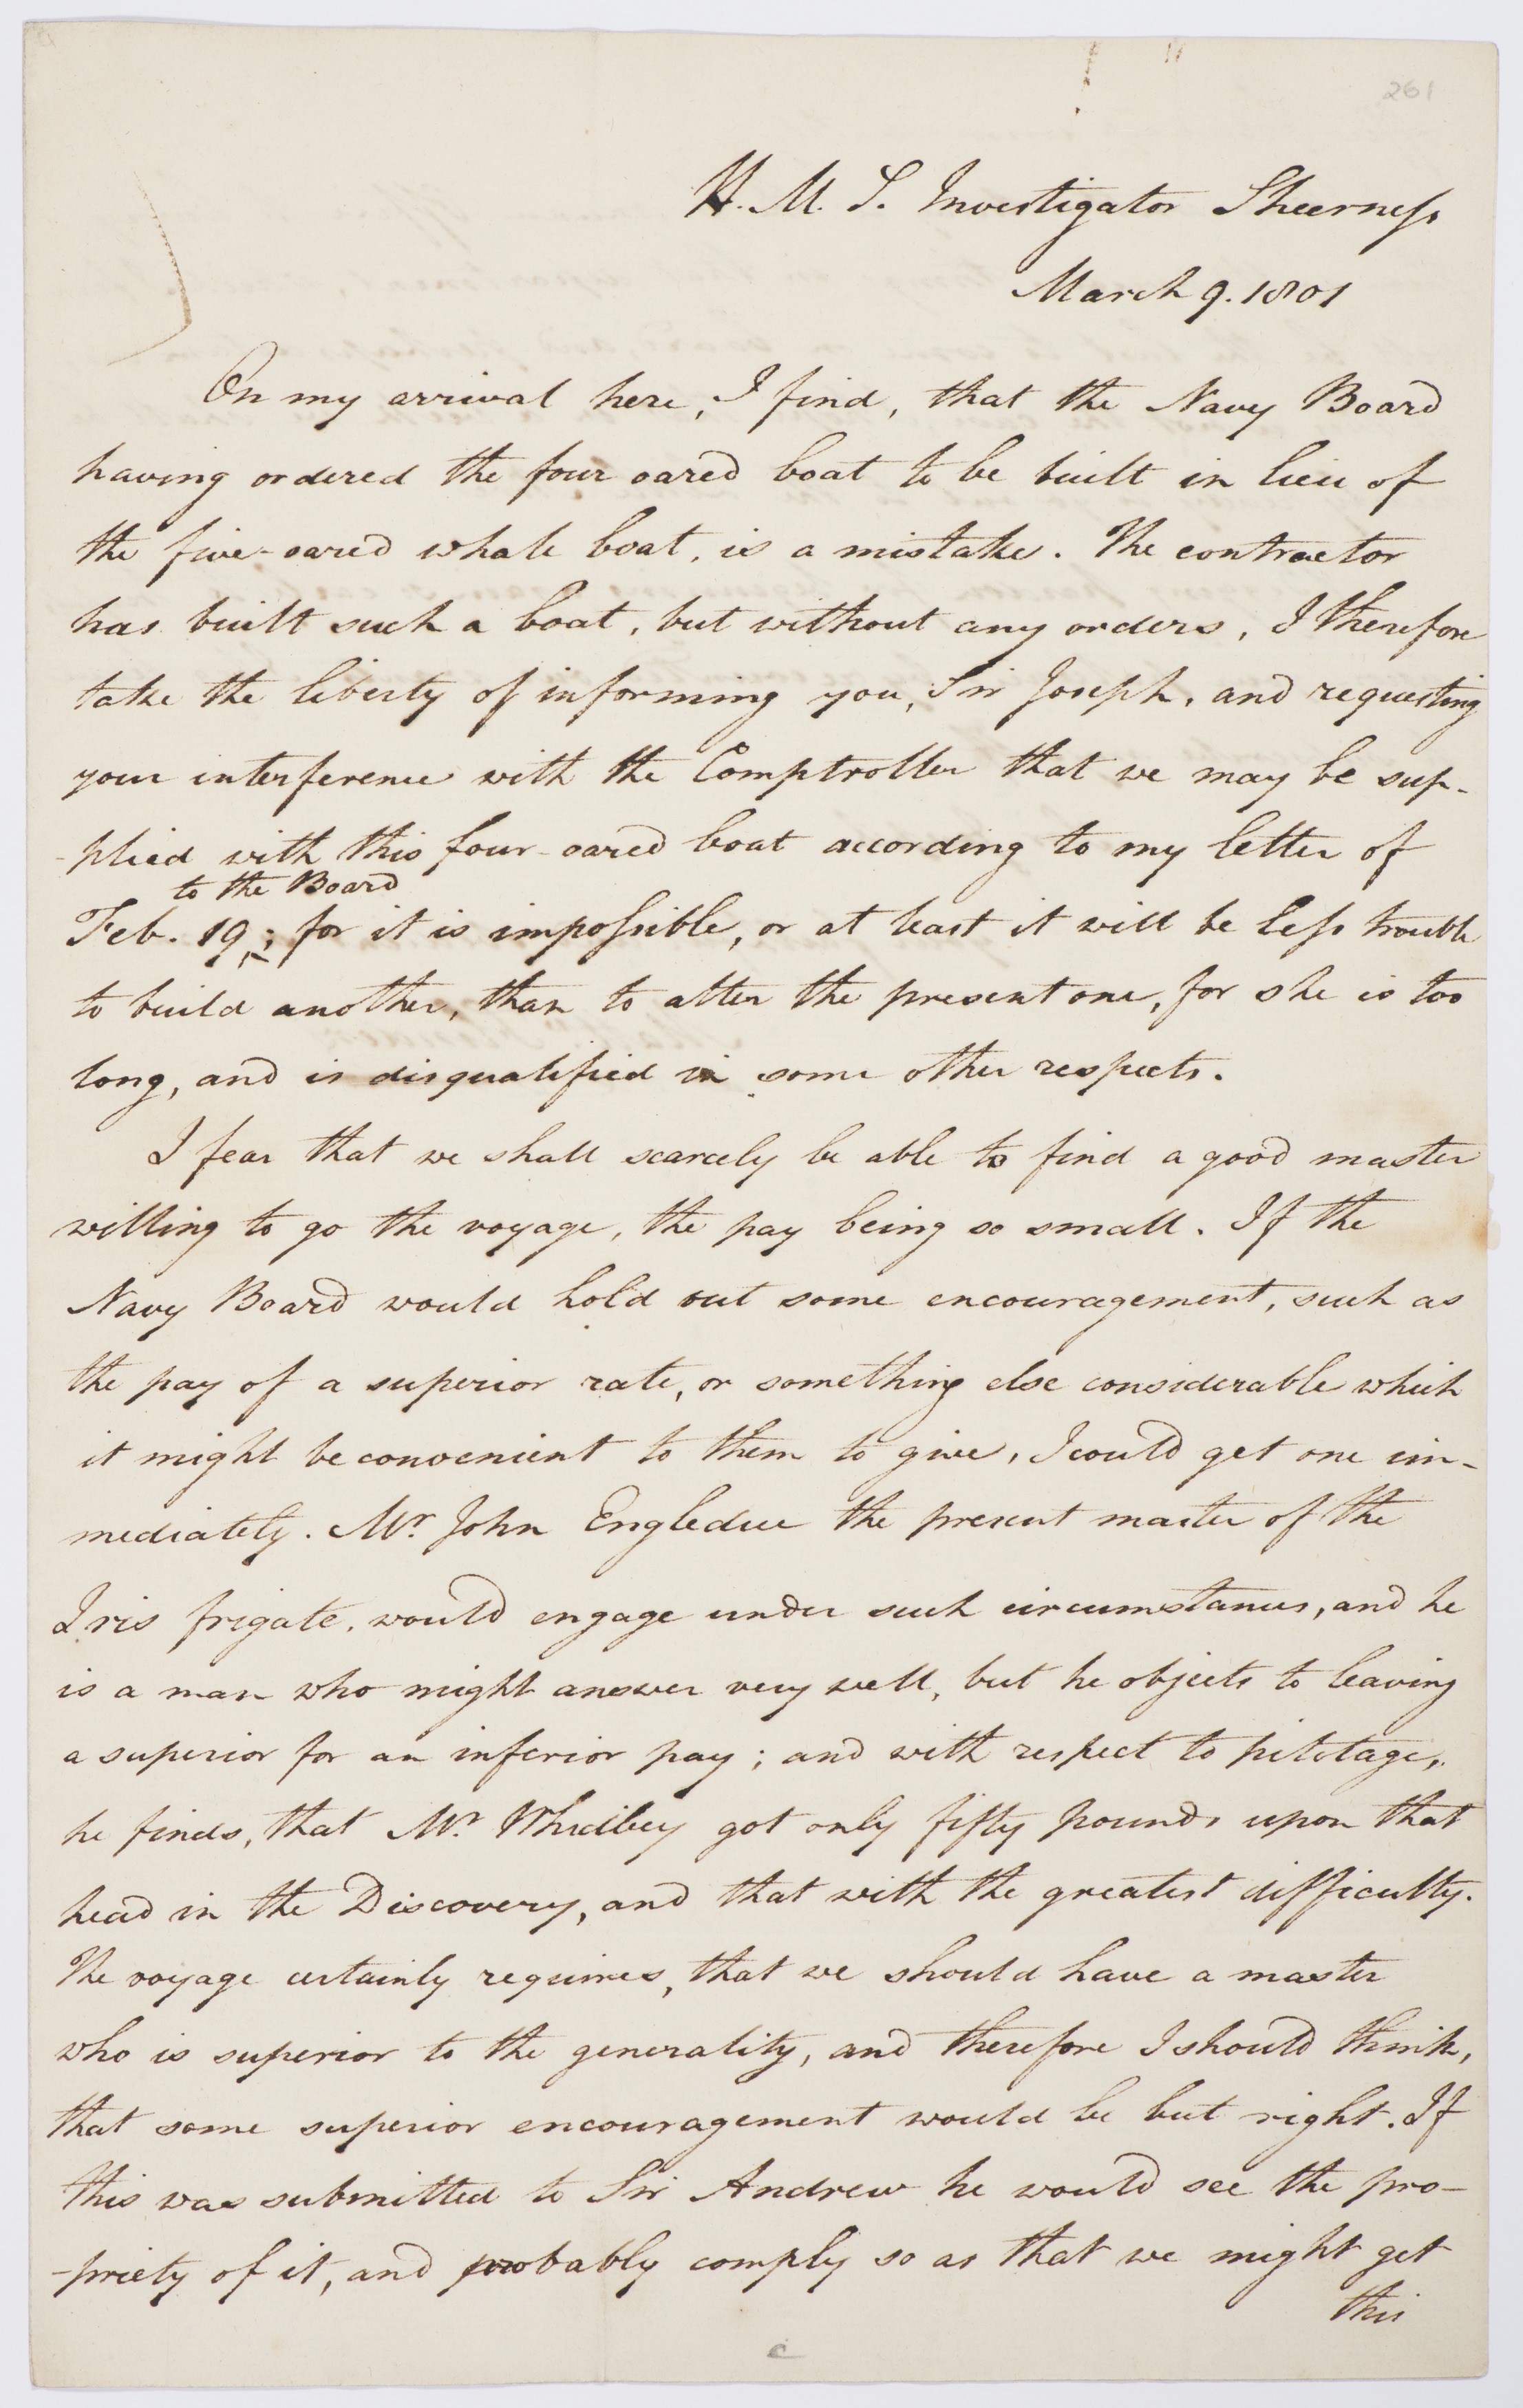 261
H. M. S. Investigator Sheerness
March 9. 1801
On my arrival here, I find, that the Navy Board
having ordered the four oared boat to be built in lieu of
the five-oared whale boat, is a mistake. The contractor
has built such a boat, but without any orders, I therefore
take the liberty of informing you, Sir Joseph, and requesting
your interference with the Comptroller that we may be sup-
-plied with this four-oared boat according to my letter of
to the Board
Feb. 19; for it is impossible, or at least it will be less trouble
to build another, than to alter the present one, for she is too
long, and is disqualified in some other respects.
I fear that we shall scarcely be able to find a good master
willing to go the voyage, the pay being so small. If the
Navy Board would hold out some encouragement, such as
the pay of a superior rate, or something else considerable which
it might be convenient to them to give, I could get one im-
mediately. Mr. John Engledue the present master of the
Iris frigate, would engage under such circumstances, and he
is a man who might answer very well, but he objects to leaving
a superior for an inferior pay; and with respect to pilotage,
he finds, that Mr. Whidbey got only fifty pounds upon that
head in the Discovery, and that with the greatest difficulty.
The voyage certainly requires, that we should have a master
who is superior to the generality, and therefore I should think,
that some superior encouragement would be but right. If
this was submitted to Sir Andrew he would see the pro-
-priety of it, and probably comply so as that we might get
this
c